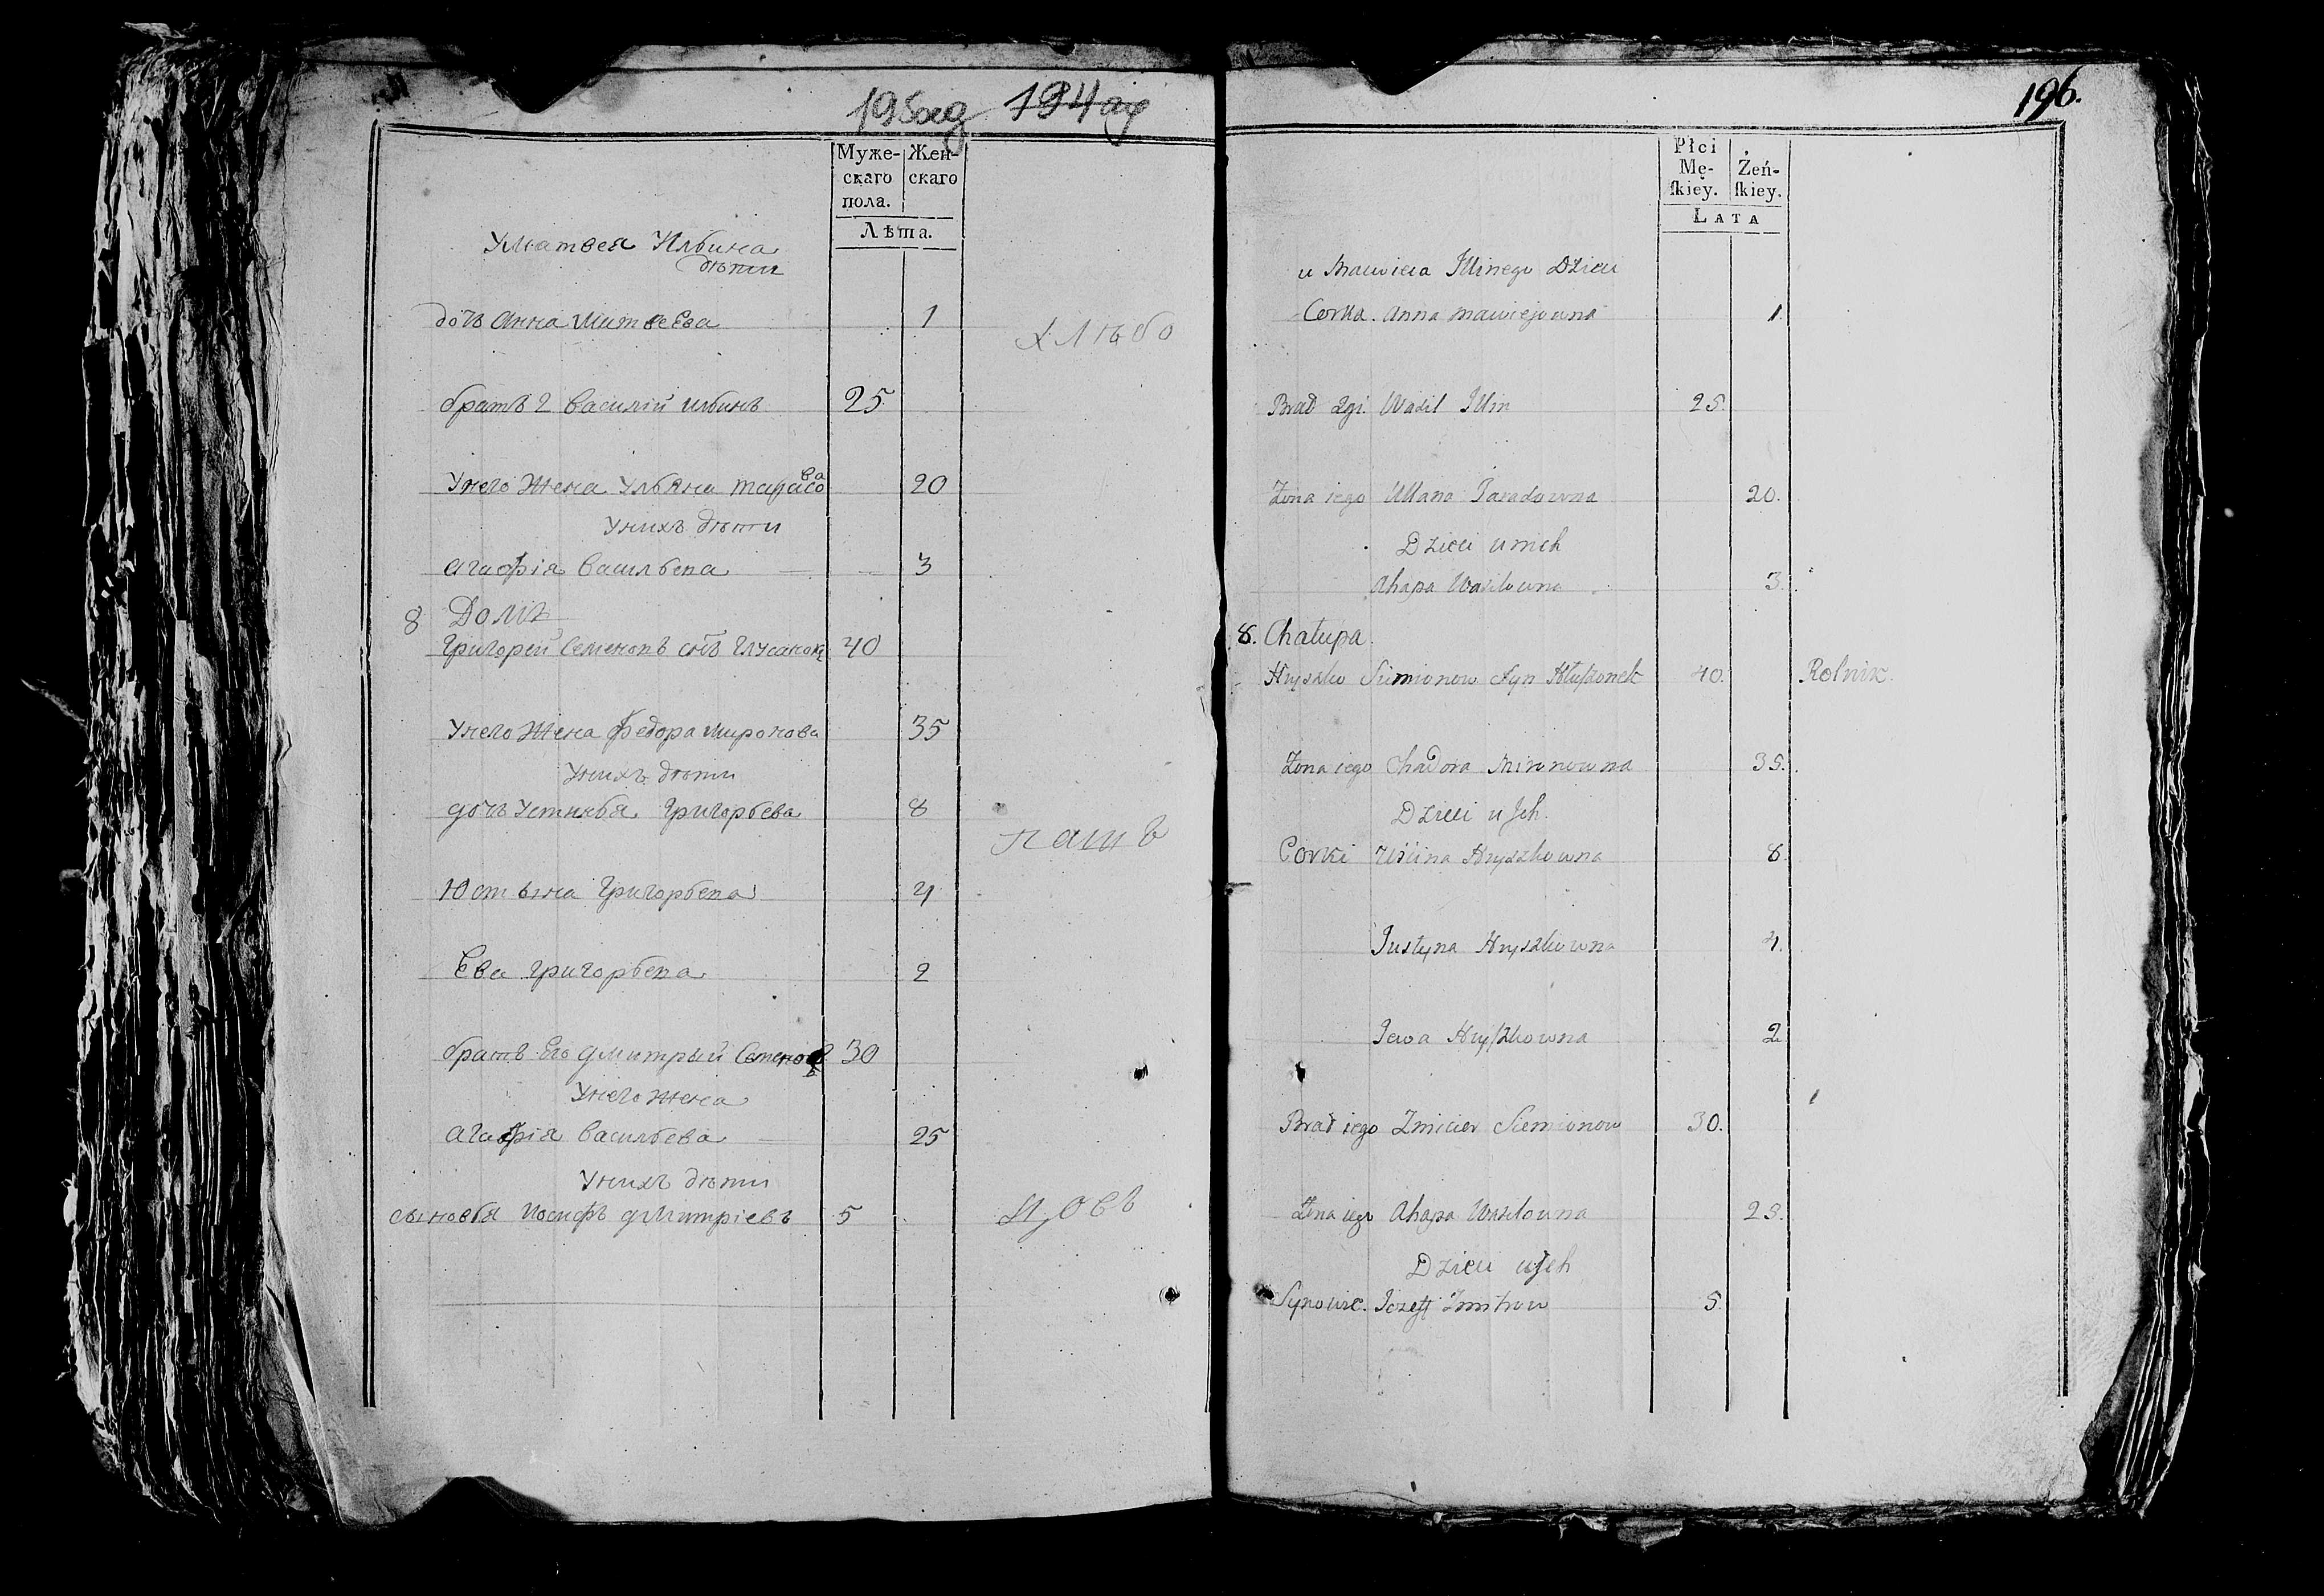 194
Муже-
скаго
пола.
Жен-
скаго
Лѣта.
У Матвея Ильина
дѣти
дочь Анна Матвеева 1
хлѣбо
братъ 2 Василий Ильинъ 25
У него Жена Ульяна Тарасова 20
У нихъ дѣти
Агафія Васильева 3
8 Домъ
Григорей Семеновъ сынъ 40
У него Жена Федора Миронова 35
У нихъ дѣти
дочь Устинья Григорьева 8
пашъ
Юстына Григорьева 4
Ева Григорьева 2
братъ Его Дмитрый Семеновъ 30
У него жена
Агафія Васильева 25
У нихъ дѣти
сыновья Иосифъ Дмитріевъ 5
цовъ
196.
Płci
Mę-
skiey.
Żeń-
skiey.
LATA
u Macwieia Illinego Dzieci
Corka. Anna Maciejowna 1.
Brad 2gi. Wasil Illin 25.
Żona iego Ullana 20.
Dzieci u nich
Ahapa Wasilowna 3.
8. Chałupa.
Hryszko Siemionow syn 40. Rolnik.
Żona iego Chadora Mironowna 35.
Dzieci u Jch.
Corki Hryszkowna 8
Justyna Hryszkowna 4.
Jewa Hryszkowna 2
Brat iego Zmicier Siemionow 30.
Żona iego Ahapa Wasilowna 25.
Dzieci u Jch
Jozeff Zmitrow 5.